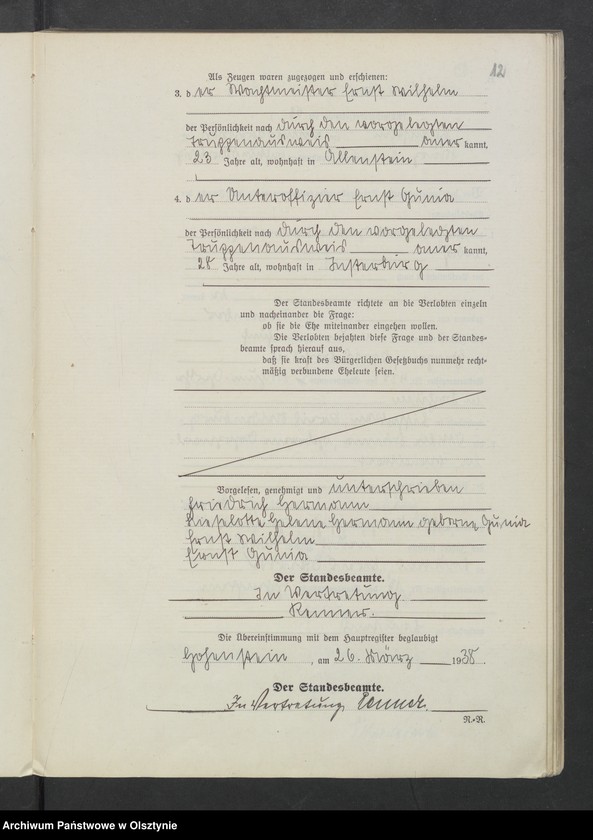 12
Als Zeugen waren zugezogen und erschienen:
3. der Wachtmeister Ernst Wilhelm
der Persönlichkeit nach durch den vorgelegten
Truppenausweis aner kannt,
23 Jahre alt, wohnhaft in Allenstein
4. der Unteroffizier Ernst Gunia
der Persönlichkeit nach durch den vorgelegten
Truppenausweis aner kannt,
28 Jahre alt, wohnhaft in Insterburg
Der Standesbeamte richtete an die Verlobten einzeln
und nacheinander die Frage:
ob sie die Ehe miteinander eingehen wollen.
Die Verlobten bejahten diese Frage und der Standes-
beamte sprach hierauf aus,
daß sie kraft des Bürgerlichen Gesetzbuchs nunmehr recht-
mäßig verbundene Eheleute seien.
Vorgelesen, genehmigt und unterschrieben
Friedrich Hermann
Lieselotte Helene Hermann geborene Gunia
Ernst Wilhelm
Ernst Gunia
Der Standesbeamte.
In Vertretung
Renner.
Die Übereinstimmung mit dem Hauptregister beglaubigt
Hohenstein, am 26. März 1938.
Der Standesbeamte.
In Vertretung Renner.
R.-R.
Archiwum Państwowe w Olsztynie